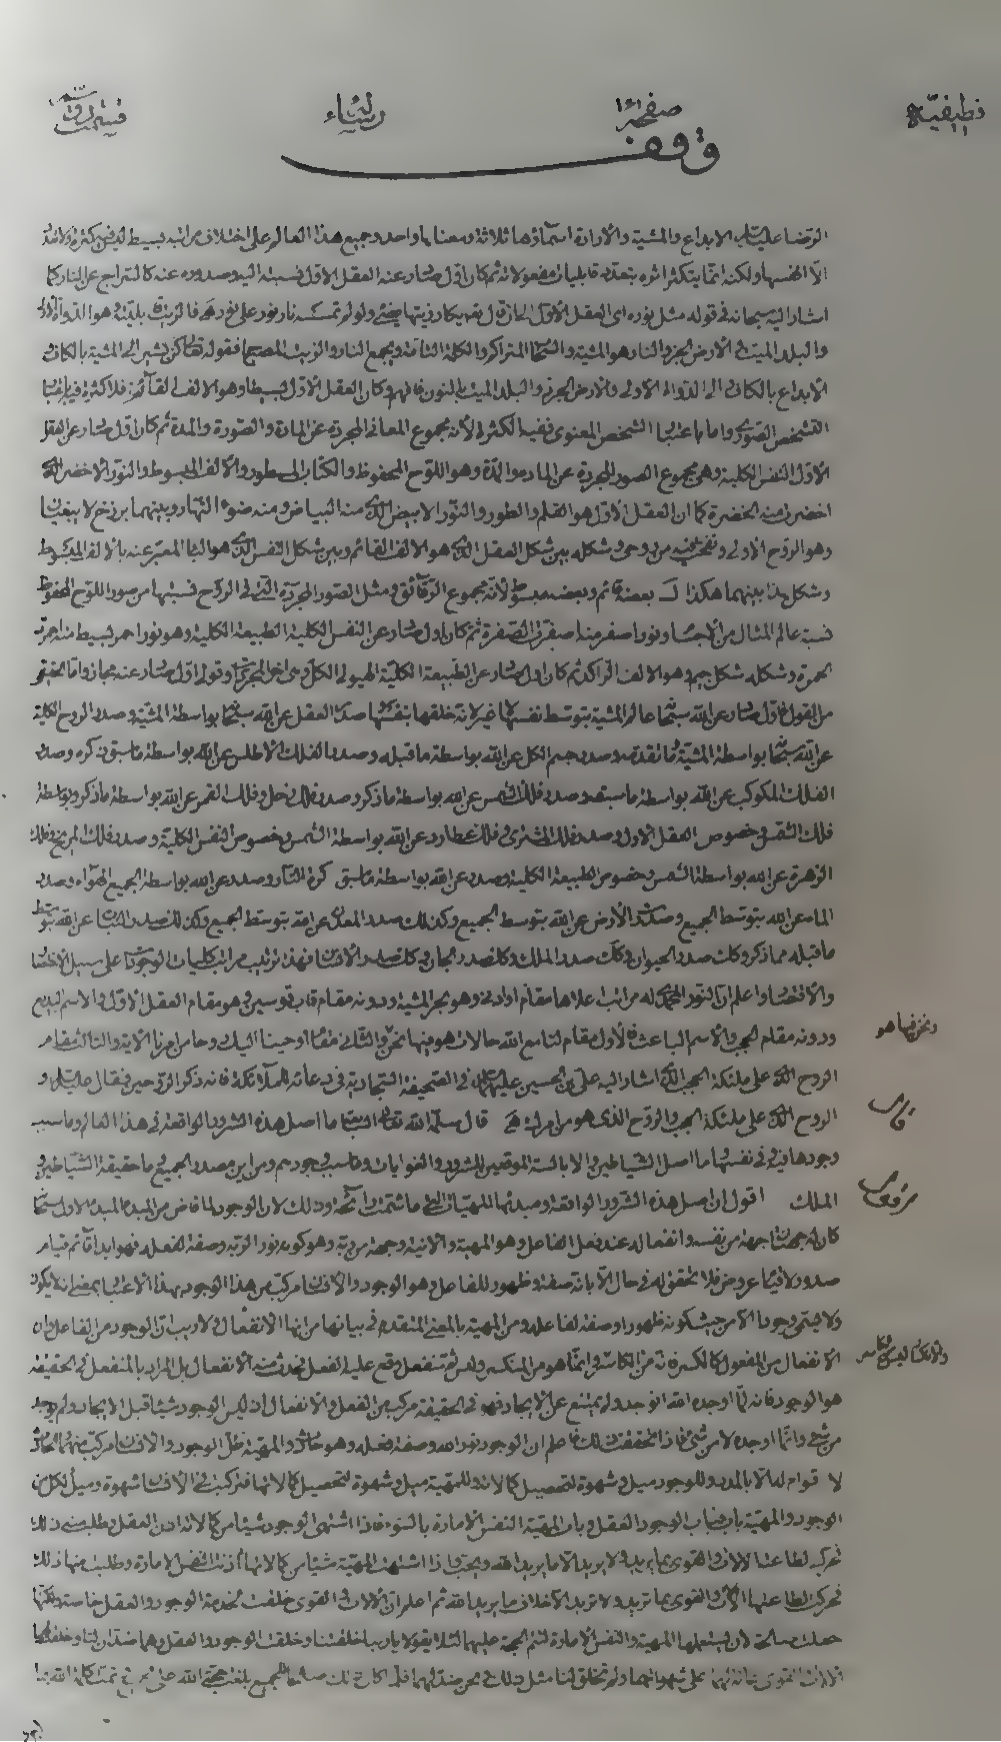 وقف
الرضا عليه السلام الابداع والمشية والارادة اسماؤها ثلاثة ومعناها واحد وجميع هذا العالم على اختلاف مراتبه بسيط ليس فيه كثرة ولا تعدد
الا انفسها ولكنه انما يتكثر اثره بتعدد قابليات مفعولاته ثم كان اول صادر عنه العقل الاول فنسبته اليه وصدوره عنه كالسراج عن النار كما
اشار اليه سبحانه في قوله مثل نوره اى العقل الاول الى ان قال تعالى يكاد زيتها يضئ ولو لم تمسسه نار نور على نور
والبلد الميت والارض الجرز والنار هو المشية والسحاب المتراكم والكلمة التامة ويجمع النار والزيت المصباح فقوله تعالى كن يشير الى المشية بالكاف
الابداع بالكاف الى الدواة الاولى والارض الجرز والبلد الميت بالنون فافهم وكان العقل الاول بسيطا وهو الالف القائم فلا كثرة فيه باعتبار
التشخص الصورى واما باعتبار الشخص المعنوى ففيه الكثرة لانه مجموع المعانى المجردة عن المادة والصورة والمدة ثم كان اول صادر عن العقل
الاول النفس الكلية وهى مجموع الصور المجردة عن المادة والمدة وهو اللوح المحفوظ والكتاب المسطور والالف المبسوط والنور الاخضر الذى
اخضرت منه الخضرة كما ان العقل الاول هو القلم والطور والنور الابيض الذى منه البياض ومنه ضوء النهار وبينهما برزخ لا يبغيان
وهو الروح الاولى ونفخت فيه من روحى وشكله بين شكل العقل الذى هو الالف القائم وبين شكل النفس الذى هو الباء المعبر عنه بالالف المبسوط
وشكل هذا بينهما هكذا بعضه قائم وبعضه مبسوط لانه مجموع الرقائق وفى مثل الصور المجردة التى فى الروح فنسبتها من صور اللوح المحفوظ
نسبة عالم المثال من الاجساد ونور اصفر منه اصفرت الصفرة ثم كان اول صادر عن النفس الكلية الطبيعة الكلية وهو نور احمر بسيط منه احمرت
الحمرة وشكله شكل جيم وهو الالف الراكد ثم كان اول صادر عن الطبيعة الكلية الهيولى الكل وهى اخر المجردات وقولى اول صادر عنه مجاز واما الحقيقى
من القول فاول صادر عن الله سبحانه عالم المشية بتوسط نفسها غير انه خلقها بنفسها وصدر العقل عن الله سبحانه بواسطة المشية وصدر الروح الكلية
عن الله سبحانه بواسطة المشية وما تقدمه وصدر جسم الكل عن الله بواسطة ما قبله وصدر الفلك الاطلس عن الله بواسطة ما سبق ذكره وصدر
الفلك المكوكب عن الله بواسطة ما سبقه وصدر فلك الشمس عن الله بواسطة ما ذكر وصدر فلك زحل وفلك القمر عن الله بواسطة ما ذكر وبواسطة
فلك الشمس وخصوص العقل الاول وصدر فلك المشترى وفلك عطارد عن الله بواسطة الشمس وخصوص النفس الكلية وصدر فلك المريخ وفلك
الزهرة عن الله بواسطة الشمس وخصوص الطبيعة الكلية وصدر عن الله بواسطة ما سبق كرة النار وصدر عن الله بواسطة الجميع الهواء وصدر
الماء عن الله بتوسط الجميع وصدرت الارض عن الله بتوسط الجميع وكذلك صدر المعدن عن الله بتوسط الجميع وكذلك صدر النبات عن الله بتوسط
ما قبله مما ذكر وكذلك صدر الحيوان وكذلك صدر الملك وكذلك صدر الجان وكذلك صدر الانسان فهذه ترتيب مراتب كليات الوجودات على سبيل الاختصار
والاقتصار واعلم ان النور المحمدى له مراتب اعلاها مقام او ادنى وهو بحر المشية ودونه مقام قاب قوسين وهو مقام العقل الاول والاسم البديع
ودونه مقام الحجب والاسم الباعث فالاول مقام لنا مع الله حالات هو فيها نحن والثانى مقام اوحينا اليك روحا من امرنا الاية والثالث مقام
الروح الذى على ملئكة الحجب الذى اشار اليه على بن الحسين عليهما السلام فى الصحيفة السجادية فى دعائه للملائكة فانه ذكر الروحين فقال عليه السلام و
الروح الذى على ملئكة الحجب والروح الذى هو من امرك قال سلمه الله تعالى ما اصل هذه الشرور الواقعة فى هذا العالم وما سبب
وجودها وفى نفسها ما اصل الشياطين والابالسة الموقعين للشرور والغوايات وما سبب وجودهم ومن اين مصدر الجميع وما حقيقة الشياطين و
الملك اقول ان اصل هذه الشرور الواقعة ومبدئها المهيات التى ما شمت رائحة الوجود وذلك لان الوجود لما فاض من المبدء الاول سبحانه
كان له جهتان جهة من نفسه وانفعاله عند فعل الفاعل وهو المهية والانية وجهة من ربه وهو كونه نور الرب وصفة الفعل فهو ابدا قائم قيام
صدور لا قيام عروض فلا تحقق له فى حال الا بانه صفة وظهور للفاعل وهو الوجود والانسان مركب من هذا الوجود بهذا الاعتبار
ولا يسمى وجودا الا من حيث كونه ظهورا وصفة لفاعله ومن المهية بالمعنى المتقدم فى بيانها من انها الانفعال ولا ريب ان الوجود من الفاعل وان
الانفعال من المفعول كالكسر فانه من الكاسر والانكسار انما هو من المنكسر
هو الوجود فانه لما اوجده الله انوجد ولم يمتنع عن الايجاد فهو فى الحقيقة مركب من الفعل والانفعال اذ ليس الوجود شيئا قبل الايجاد ولم يوجد
من شئ وانما اوجده لا من شئ فاذا تحققت ذلك فاعلم ان الوجود نور الله وصفة فعله وهو حادث والمهية ظل الوجود والانسان مركب منهما
لا قوام له الا بالمدد وللوجود ميل وشهوة لتحصيل كمالاته وللمهية ميل وشهوة لتحصيل كمالاتها فتركبت فى الانسان شهوة وميل لكل من
الوجود والمهية باب فباب الوجود العقل وباب المهية النفس الامارة بالسوء فاذا اشتهى الوجود شيئا من كمالاته اذن العقل وطلب منه ذلك
فحركه لطاعته الالات والقوى بما يريد ولا يريد الا ما يريد الله ويحب واذا اشتهت المهية شيئا من كمالاتها اذنت النفس الامارة وطلبت منها ذلك
فحركت لطاعتها الالات والقوى بما تريد ولا تريد الا خلاف ما يريد الله ثم اعلم ان الالات والقوى خلقت لخدمة الوجود والعقل خاصة ولكنها
جعلت صالحة لان يستعملها المهية والنفس الامارة لتتم الحجة عليهما لئلا يقولا يا ربنا خلقتنا وخلقت الوجود والعقل وهما ضدان لنا وخلقت لهما
الالات والقوى اعانة لهما على شهواتهما ولم تخلق لنا مثل ذلك ونحن ضد لهما فلما كانت تلك صالحة للجميع بلغت حجة الله